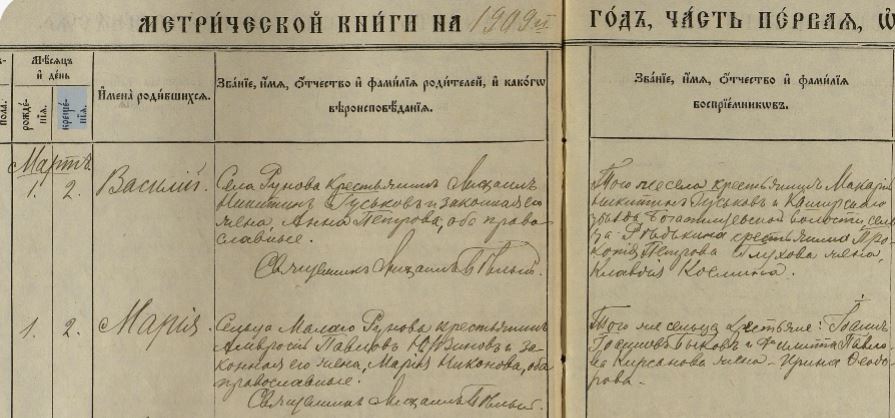 МЕТРИ́ЧЕСКОЙ КНИ́ГИ НА 1909й ГО́ДЪ, ЧА́СТЬ ПЕ́РВАЯ, Ѡ҆
Мѣ́сяцъ
и҆ де́нь
пола.
рожде́-
нїя.
креще́-
нїя.
И҆мена̀ роди́вшихся.
Зва́нїе, и҆́мя, ѻ҆́тчество и҆ фами́лїя роди́телей, и҆ како́гѡ
вѣроисповѣ́данїя.
Зва́нїе, и҆́мя, ѻ҆́тчество и҆ фами́лїя
воспрїе́мникѡвъ.
Мартъ.
1. 2.
Василій.
Села Рунова крестьянинъ Михаилъ
Никитинъ Гуськовъ и законная его
жена, Анна Петрова, оба право
славные.
Священникъ Михаилъ
Того же села крестьянинъ Макарій
Никитинъ Гуськовъ и Каширскаго
уѣзда волости, сель
ца крестьянина Про
копія Петрова Глухова жена,
Клавдія Космина.
1. 2.
Марія.
Сельца Малаго Рунова крестьянинъ
Амвросій Павловъ и за-
конная его жена, Марія Никонова, оба
православные.
Священникъ Михаилъ
Того же сельца крестьяне: Іоаннъ
Быковъ и Филиппа Павло-
ва Кирсанова жена - Ирина Ѳеодо-
рова.